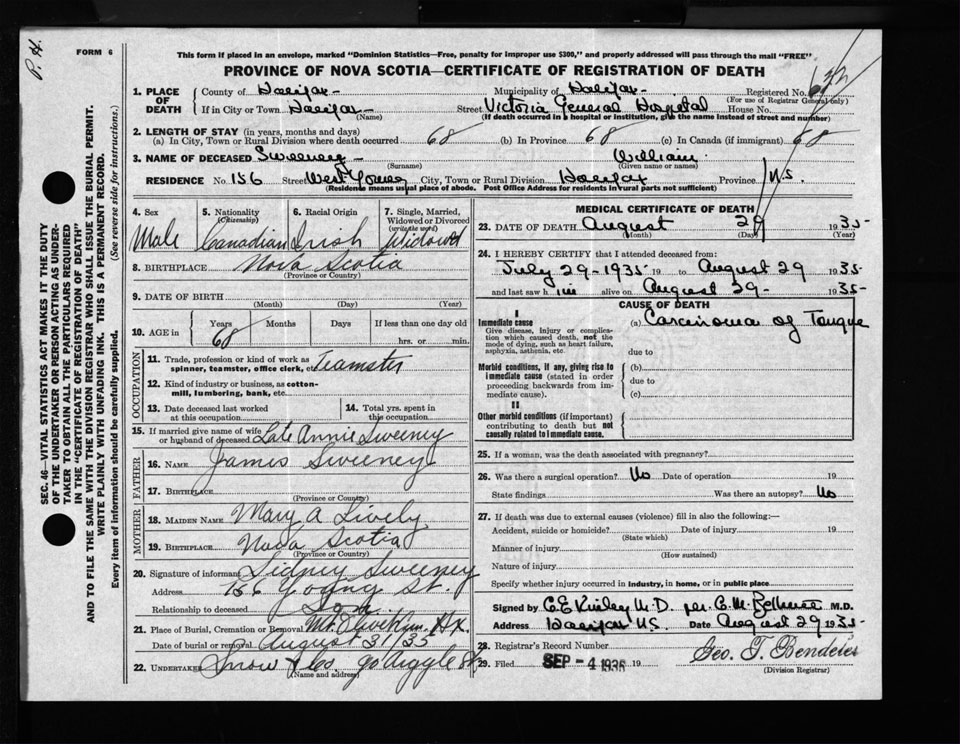 P. H.
FORM 6
This form if placed in an envelope, marked "Dominion Statistics—Free, penalty for improper use $300," and properly addressed will pass through the mail "FREE"
PROVINCE OF NOVA SCOTIA—CERTIFICATE OF REGISTRATION OF DEATH
1. PLACE OF DEATH
County of Halifax
Municipality of Halifax
Registered No.
(For use of Registrar General only)
If in City or Town Halifax
(Name)
Street Victoria General Hospital House No.
(If death occurred in a hospital or institution, give the name instead of street and number)
2. LENGTH OF STAY (in years, months and days)
(a) In City, Town or Rural Division where death occurred 68 (b) In Province 68 (c) In Canada (if immigrant) 68
3. NAME OF DECEASED Sweeney William
(Surname) (Given name or names)
RESIDENCE No. 156 Street West Young City, Town or Rural Division Halifax Province N.S.
(Residence means usual place of abode. Post Office Address for residents in rural parts not sufficient)
4. Sex
Male
5. Nationality
(Citizenship)
Canadian
6. Racial Origin
Irish
7. Single, Married, Widowed or Divorced
(write the word)
Widowed
8. BIRTHPLACE Nova Scotia
(Province or Country)
9. DATE OF BIRTH
(Month) (Day) (Year)
10. AGE in
Years Months Days If less than one day old
68 hrs. or min.
OCCUPATION
11. Trade, profession or kind of work as
spinner, teamster, office clerk, etc. Teamster
12. Kind of industry or business, as cotton-
mill, lumbering, bank, etc.
13. Date deceased last worked
at this occupation
14. Total yrs. spent in
this occupation
15. If married give name of wife
or husband of deceased Late Annie Sweeney
FATHER
16. NAME James Sweeney
17. BIRTHPLACE
(Province or Country)
MOTHER
18. MAIDEN NAME Mary A Lively
19. BIRTHPLACE Nova Scotia
(Province or Country)
20. Signature of informant Sidney Sweeney
Address 156 Young St.
Relationship to deceased Son
21. Place of Burial, Cremation or Removal Mt. Olivet Hx.
Date of burial or removal August 31/35
22. UNDERTAKER Snow & Co. 90 Argyle St
(Name and address)
MEDICAL CERTIFICATE OF DEATH
23. DATE OF DEATH August 29 1935
(Month) (Day) (Year)
24. I HEREBY CERTIFY that I attended deceased from:
July 29-1935 19 to August 29 1935
and last saw h im alive on August 29- 1935
CAUSE OF DEATH
I
Immediate cause
Give disease, injury or complica-
tion which caused death, not the
mode of dying, such as heart failure,
asphyxia, asthenia, etc.
(a) Carcinoma of Tongue
due to
Morbid conditions, if any, giving rise to
immediate cause (stated in order
proceeding backwards from im-
mediate cause).
(b)
due to
(c)
II
Other morbid conditions (if important)
contributing to death but not
causally related to immediate cause.
25. If a woman, was the death associated with pregnancy?
26. Was there a surgical operation? No Date of operation 19
State findings Was there an autopsy? No
27. If death was due to external causes (violence) fill in also the following:—
Accident, suicide or homicide? Date of injury 19
(State which)
Manner of injury
(How sustained)
Nature of injury
Specify whether injury occurred in industry, in home, or in public place
Signed by C.E. Kinley M.D. per C. M. M.D.
Address Halifax N.S. Date August 29 1935
28. Registrar's Record Number
29. Filed SEP - 4 1935 19
Geo. T. Bendelier
(Division Registrar)
SEC. 46—VITAL STATISTICS ACT MAKES IT THE DUTY
OF THE UNDERTAKER OR PERSON ACTING AS UNDER-
TAKER TO OBTAIN ALL THE PARTICULARS REQUIRED
IN THE "CERTIFICATE OF REGISTRATION OF DEATH"
AND TO FILE THE SAME WITH THE DIVISION REGISTRAR WHO SHALL ISSUE THE BURIAL PERMIT.
WRITE PLAINLY WITH UNFADING INK. THIS IS A PERMANENT RECORD.
Every item of information should be carefully supplied. (See reverse side for instructions.)